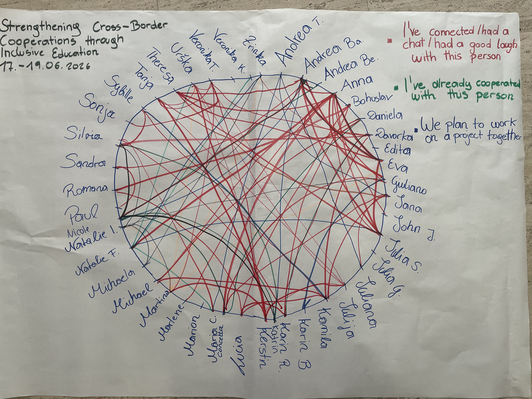 Strengthening Cross-Border
Cooperations through
Inclusive Education
17.-19.06.2026
I've connected/had a
chat/had a good laugh
with this person
I've already cooperated
with this person
We plan to work
on a project together
Andrea T.
Andrea Ba
Andrea Be
Anna
Bohuslav
Daniela
Davorka
Edita
Eva
Giuliano
Jana
John J.
Julia S.
Julia G.
Juliana
Julija
Kamila
Karin B
Karin R.
Katrin
Kerstin
Lucia
Maria C.
Marion
Marlene
Martina
Michael
Michaela
Natalie F.
Natalie I.
Nicole
Paul
Romana
Sandra
Silvia
Sonja
Sybille
Tanja
Theresa
Urška
Veronika T.
Veronika K.
Zrinka